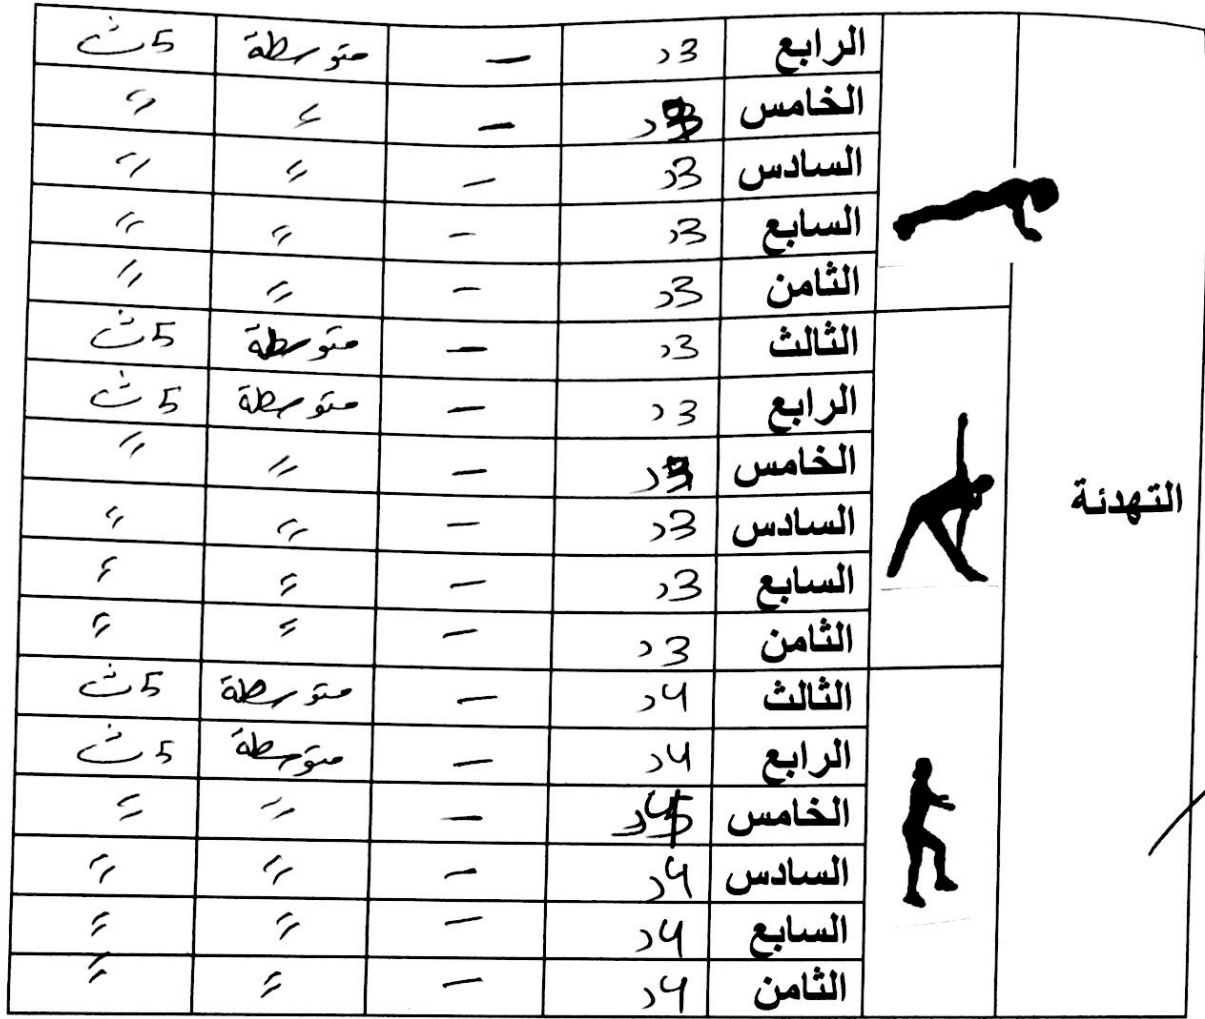 الرابع 3د – متوسطة 5ث
الخامس 3د – 〃 〃
السادس 3د – 〃 〃
السابع 3د – 〃 〃
الثامن 3د – 〃 〃
الثالث 3د – متوسطة 5ث
الرابع 3د – متوسطة 5ث
الخامس 3د – 〃 〃
التهدئة
السادس 3د – 〃 〃
السابع 3د – 〃 〃
الثامن 3د – 〃 〃
الثالث 4د – متوسطة 5ث
الرابع 4د – متوسطة 5ث
الخامس – 〃 〃
السادس 4د – 〃 〃
السابع 4د – 〃 〃
الثامن 4د – 〃 〃